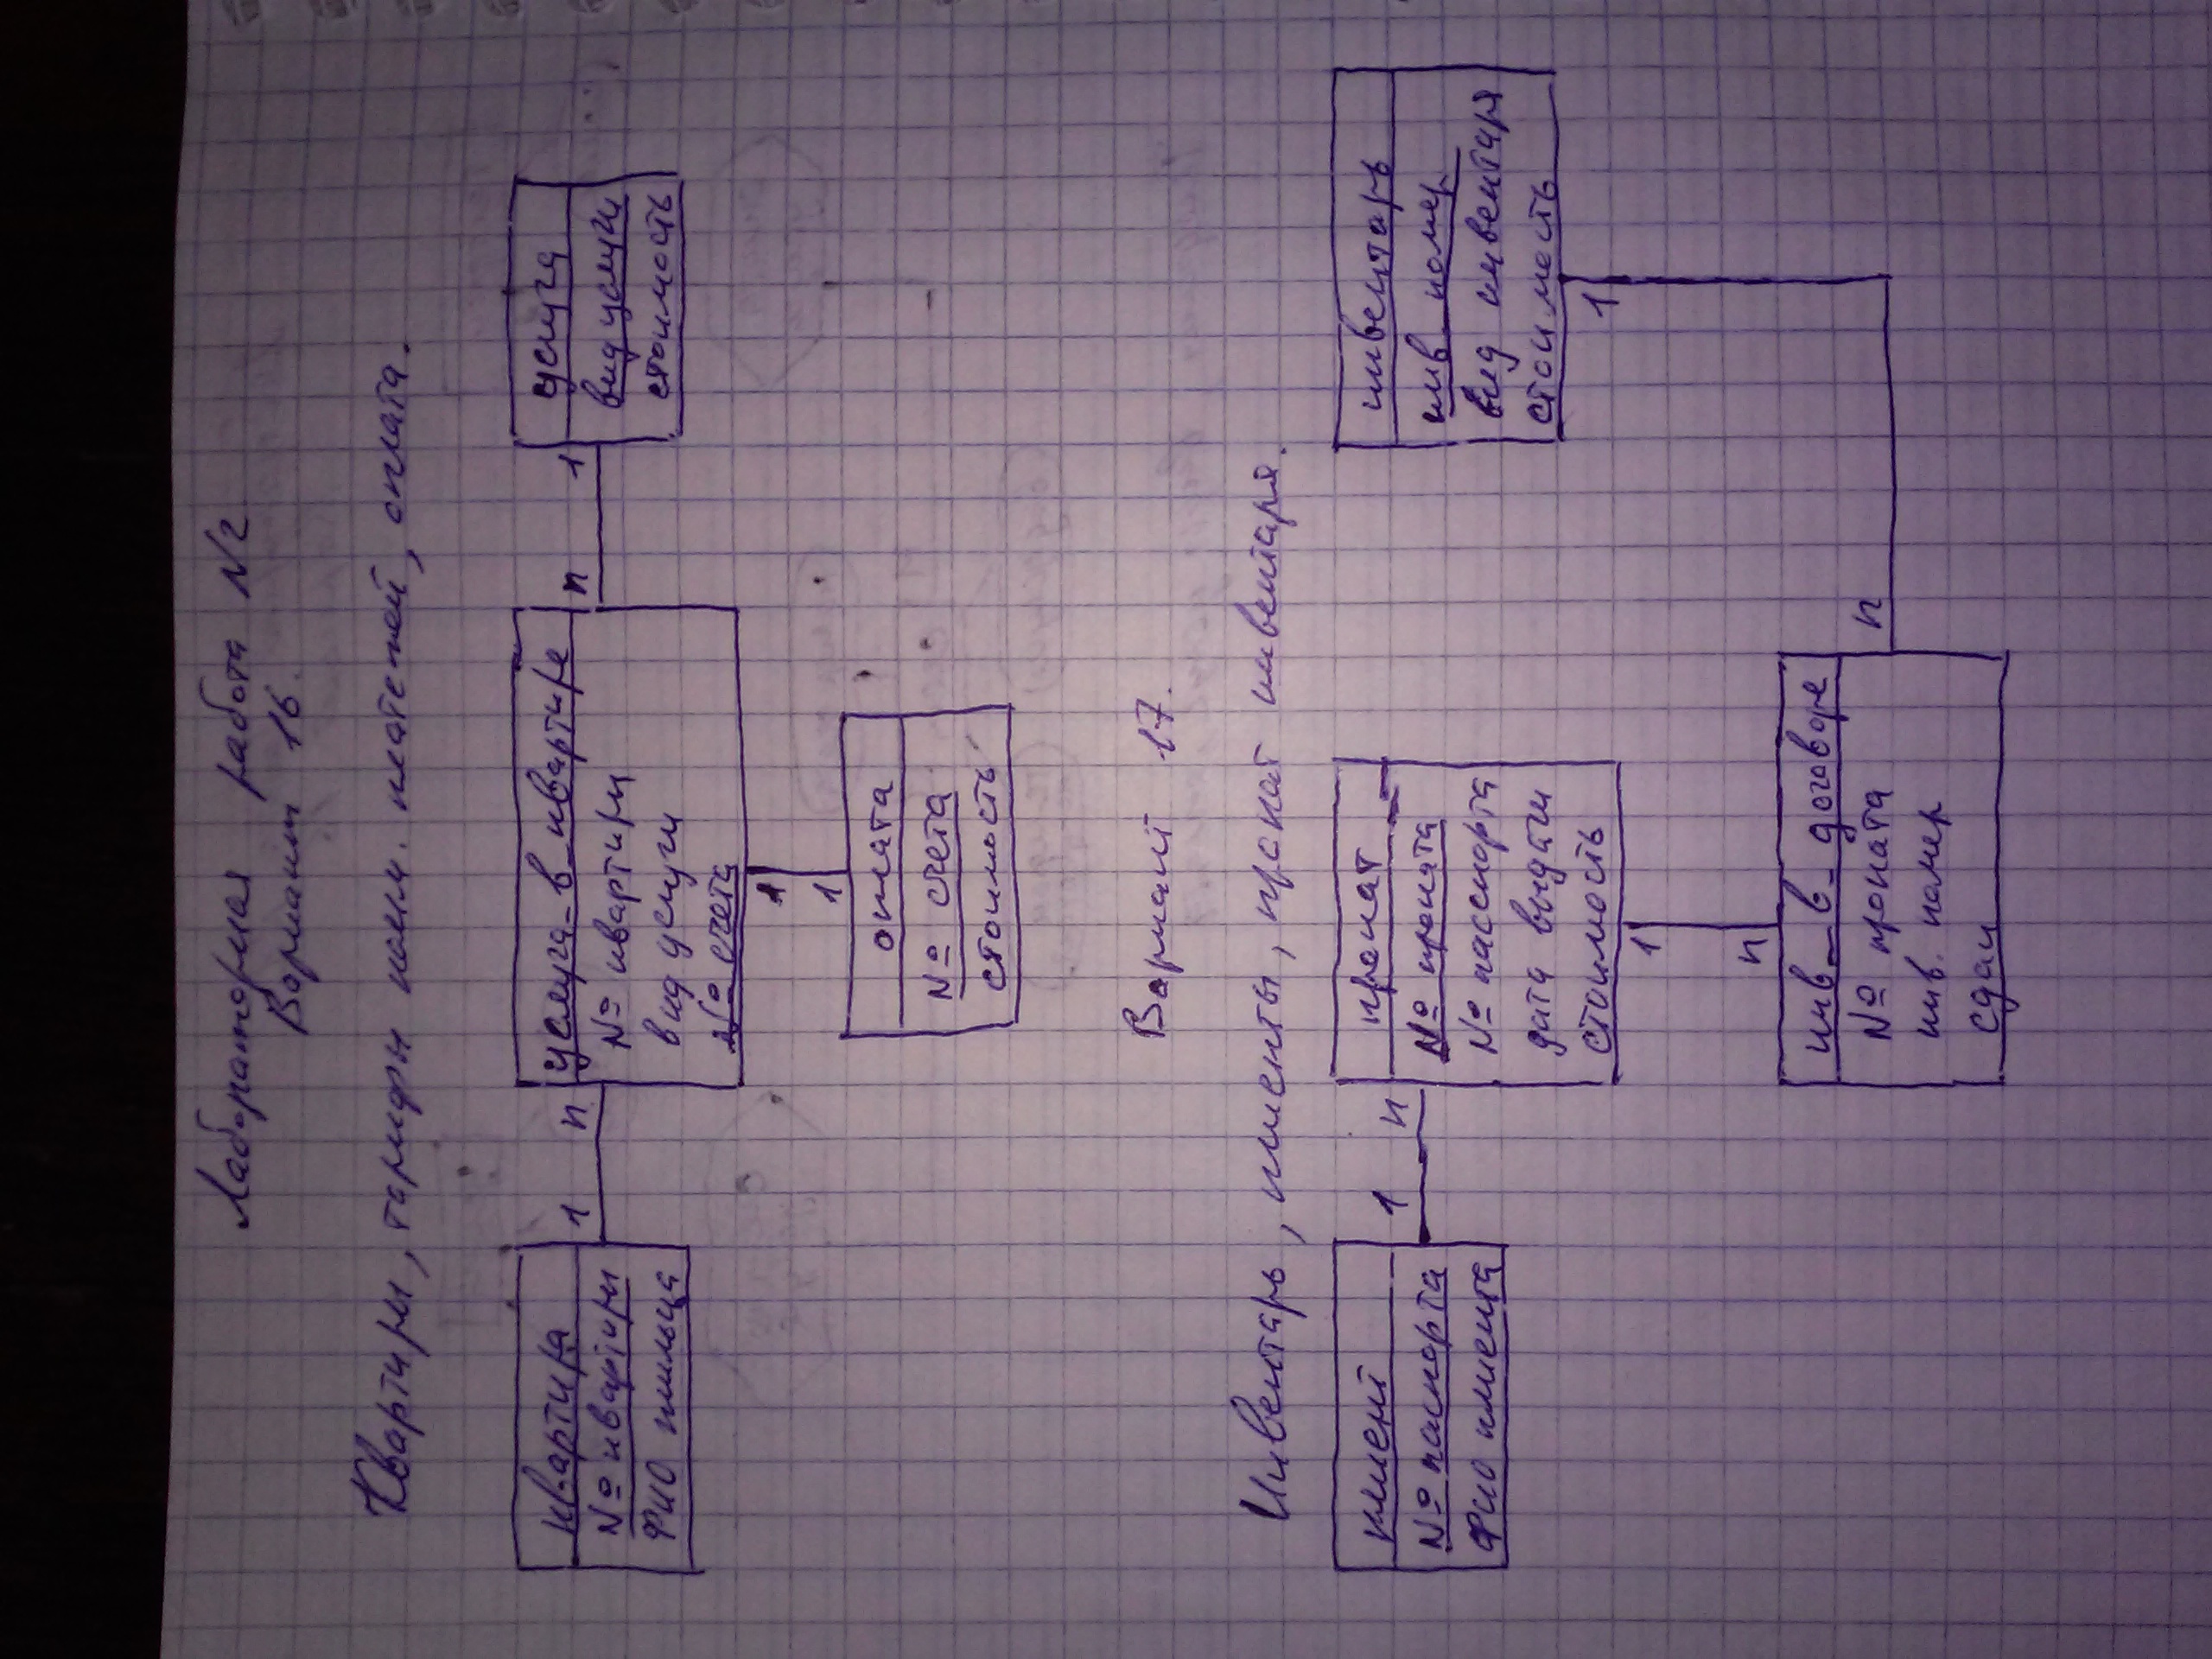 Лабораторная работа №2
Вариант 16.
Квартиры, тарифы комм. платежей, оплата.
квартира
№ квартиры
ФИО жильца
1 n
услуга_в_квартире
№ квартиры
вид услуги
№ счета
n 1
услуга
вид услуги
стоимость
1
1
оплата
№ счета
стоимость
Вариант 17.
Инвентарь, клиенты, прокат инвентаря.
клиент
№ паспорта
ФИО клиента
1 n
прокат
№ проката
№ пасспорта
дата выдачи
стоимость
инвентарь
инв. номер
вид инвентаря
стоимость
1
1
n
инв_в_договоре
№ проката
инв. номер
сдан
n